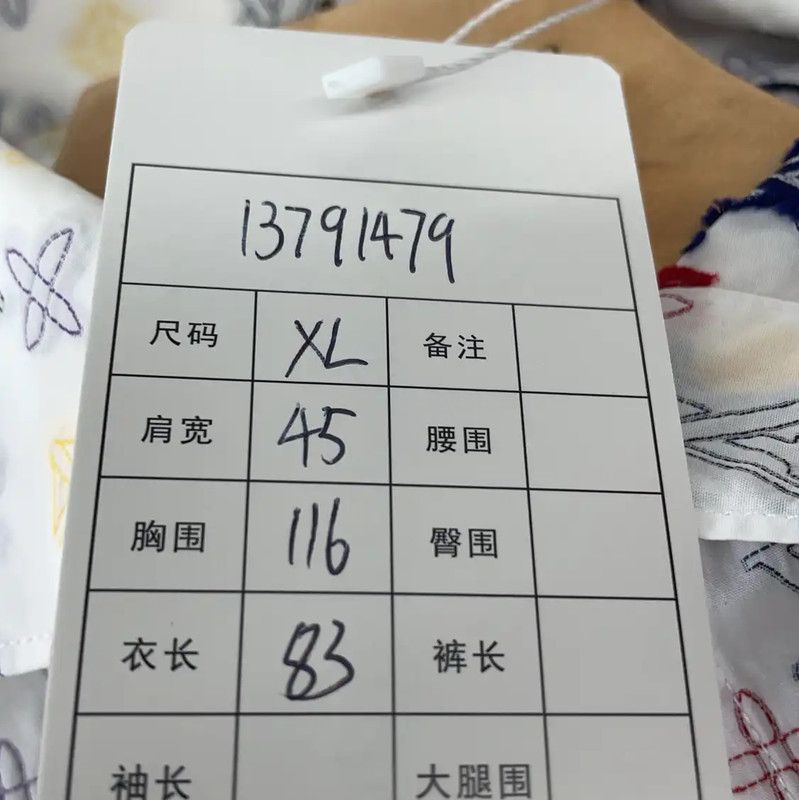 13791479
尺码 XL 备注
肩宽 45 腰围
胸围 116 臀围
衣长 83 裤长
袖长 大腿围